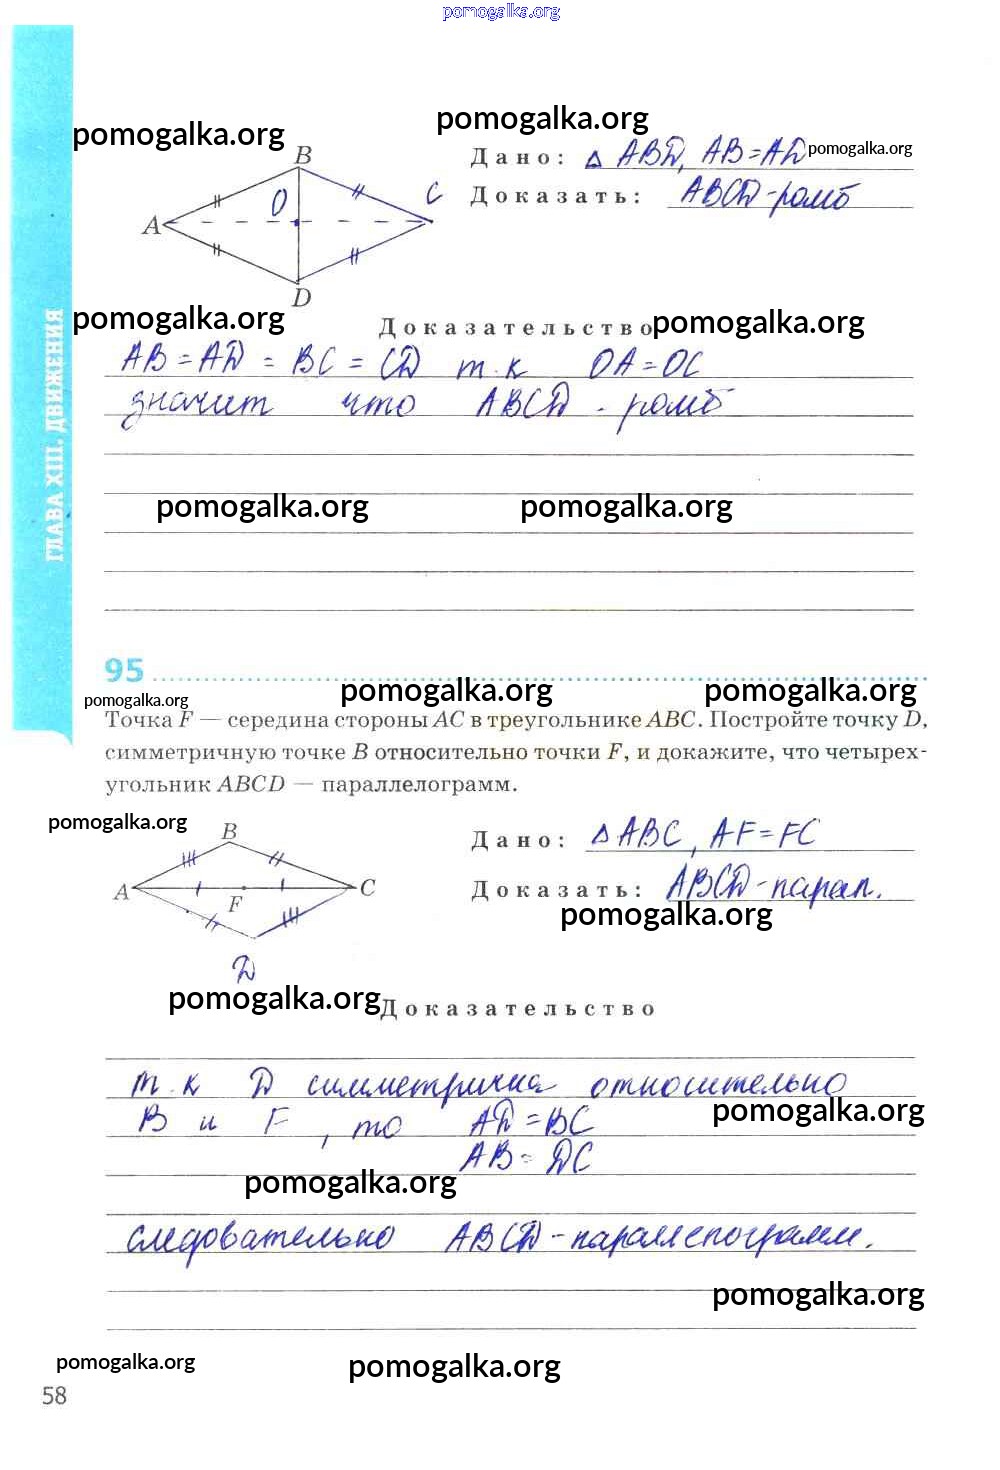 pomogalka.org
pomogalka.org
pomogalka.org
Дано: △ ABD, AB=AD
pomogalka.org
Доказать: ABCD-ромб
B
O
C
A
D
ГЛАВА XIII. ДВИЖЕНИЯ
pomogalka.org
Доказательство
pomogalka.org
AB=AD = BC = CD т.к OA=OC
значит что ABCD - ромб
pomogalka.org
pomogalka.org
95
pomogalka.org
pomogalka.org
pomogalka.org
Точка F — середина стороны AC в треугольнике ABC. Постройте точку D,
симметричную точке B относительно точки F, и докажите, что четырех-
угольник ABCD — параллелограмм.
pomogalka.org
Дано: △ ABC, AF=FC
Доказать: ABCD-парал.
pomogalka.org
B
A
F
C
D
pomogalka.org
Доказательство
т.к D симметрична относительно
pomogalka.org
B и F, то AD=BC
AB=DC
pomogalka.org
следовательно ABCD-параллелограмм.
pomogalka.org
pomogalka.org
pomogalka.org
58